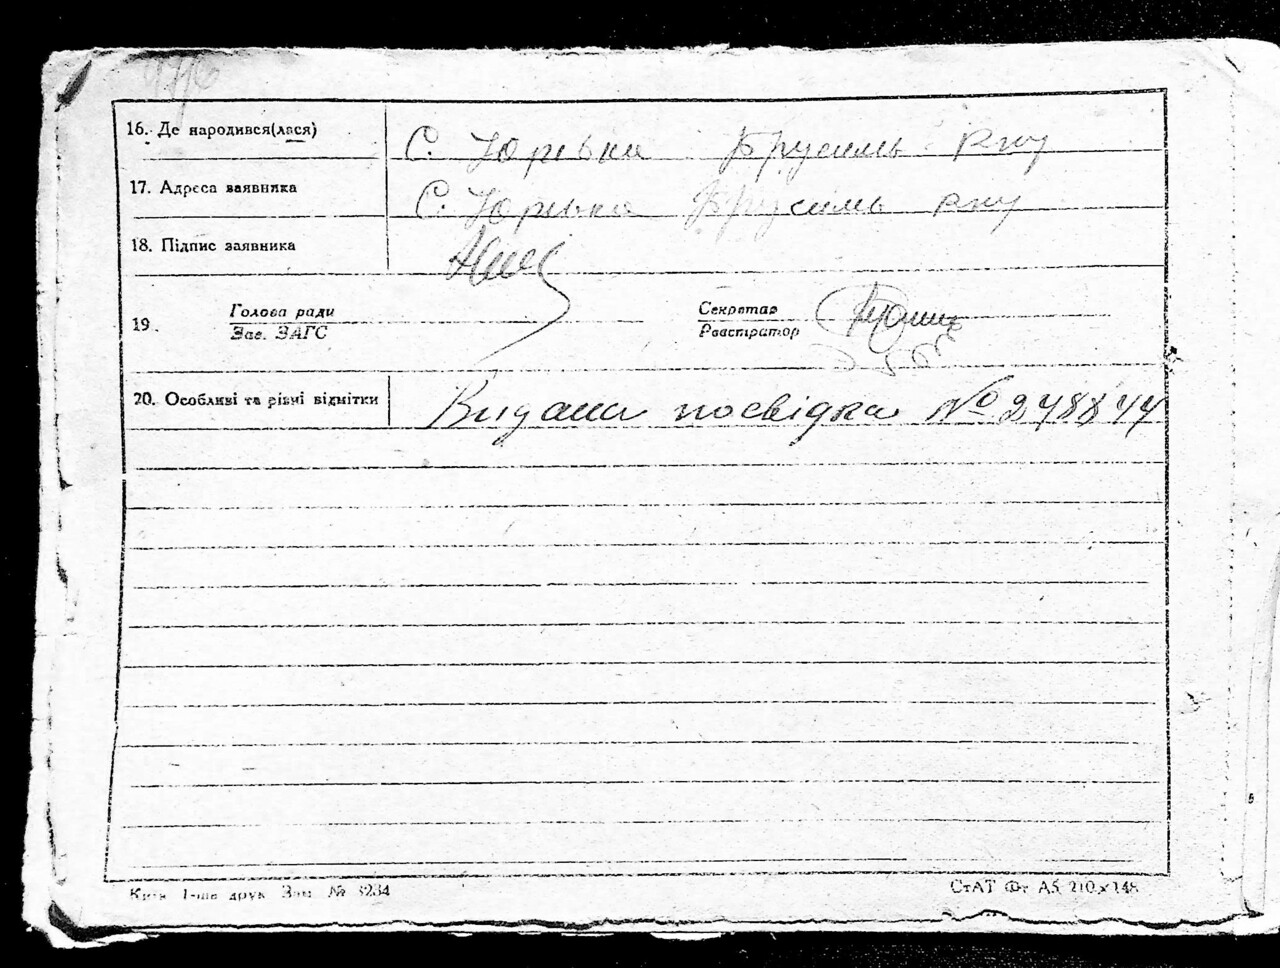 16. Де народився(лася) С. Юрівка Брусиль р-ну
17. Адреса заявника С. Юрівка Брусиль р-ну
18. Підпис заявника
Голова ради Секретар
19.
Зав. ЗАГС Реєстратор
20. Особливі та різні відмітки Видана посвідка №
Київ 1-ша друк. Зам. № 3234 СтАТ Фт А5 210×148